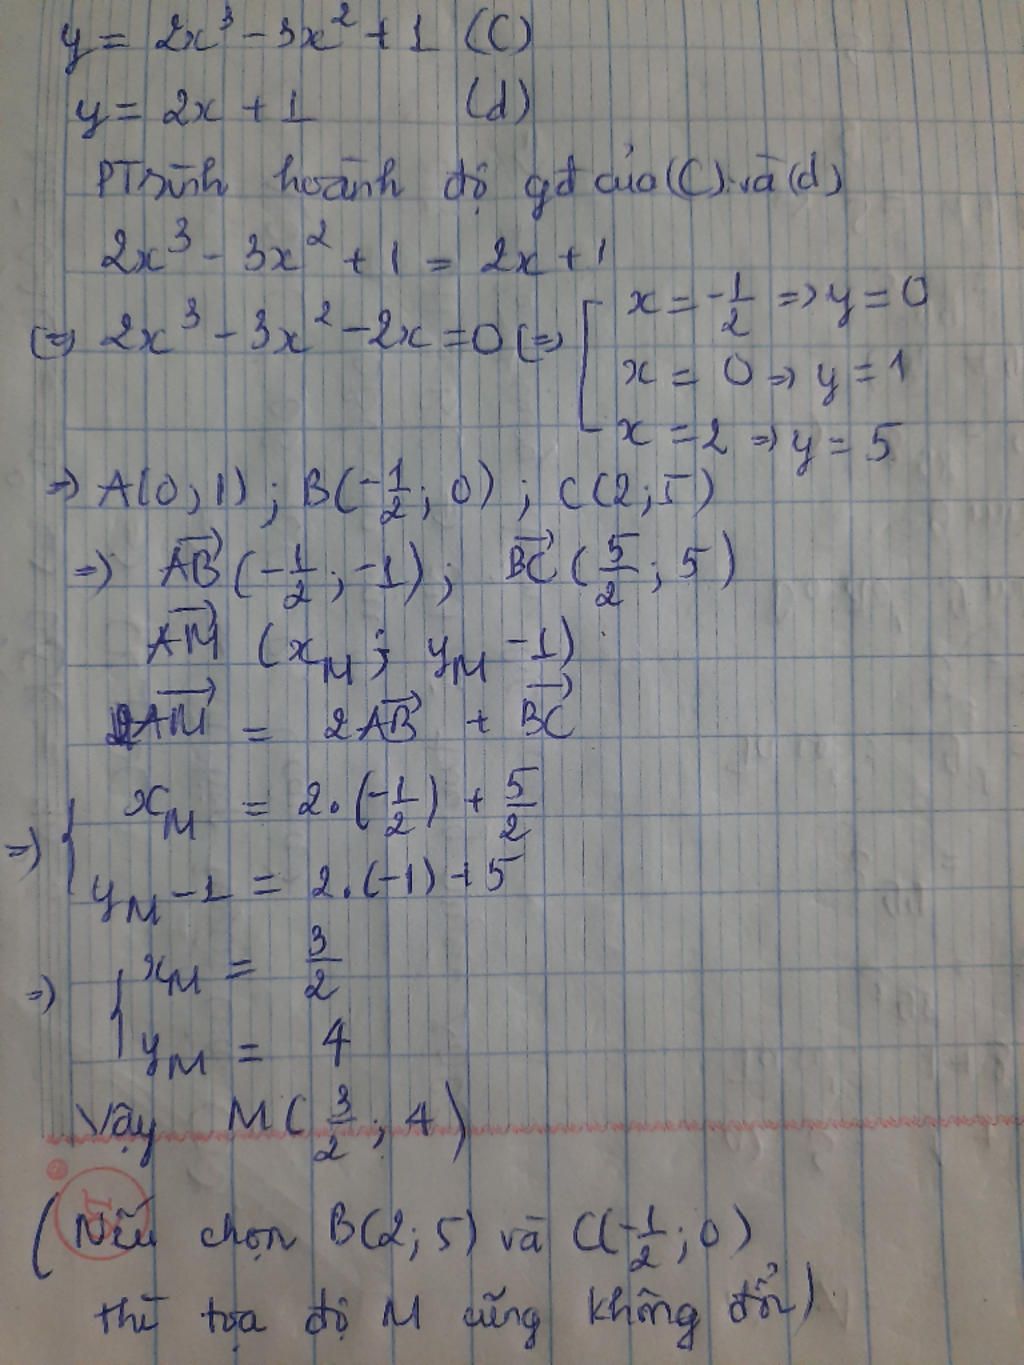 y = 2x³ - 3x² + 1 (C)
y = 2x + 1 (d)
PTrình hoành độ gđ của (C) và (d)
2x³ - 3x² + 1 = 2x + 1
(=) 2x³ - 3x² - 2x = 0 (=) [ x = -1/2 => y = 0
x = 0 => y = 1
x = 2 => y = 5
=) A(0; 1) ; B(-1/2; 0) ; C(2; 5)
=) AB→ (-1/2; -1); BC→ (5/2; 5)
AM→ (x_M; y_M - 1)
AM→ = 2AB→ + BC→
=) { x_M = 2.(-1/2) + 5/2
y_M - 1 = 2.(-1) + 5
=) { x_M = 3/2
y_M = 4
Vậy M(3/2; 4)
(Nếu chọn B(2; 5) và C(-1/2; 0)
thì tọa độ M cũng không đổi)